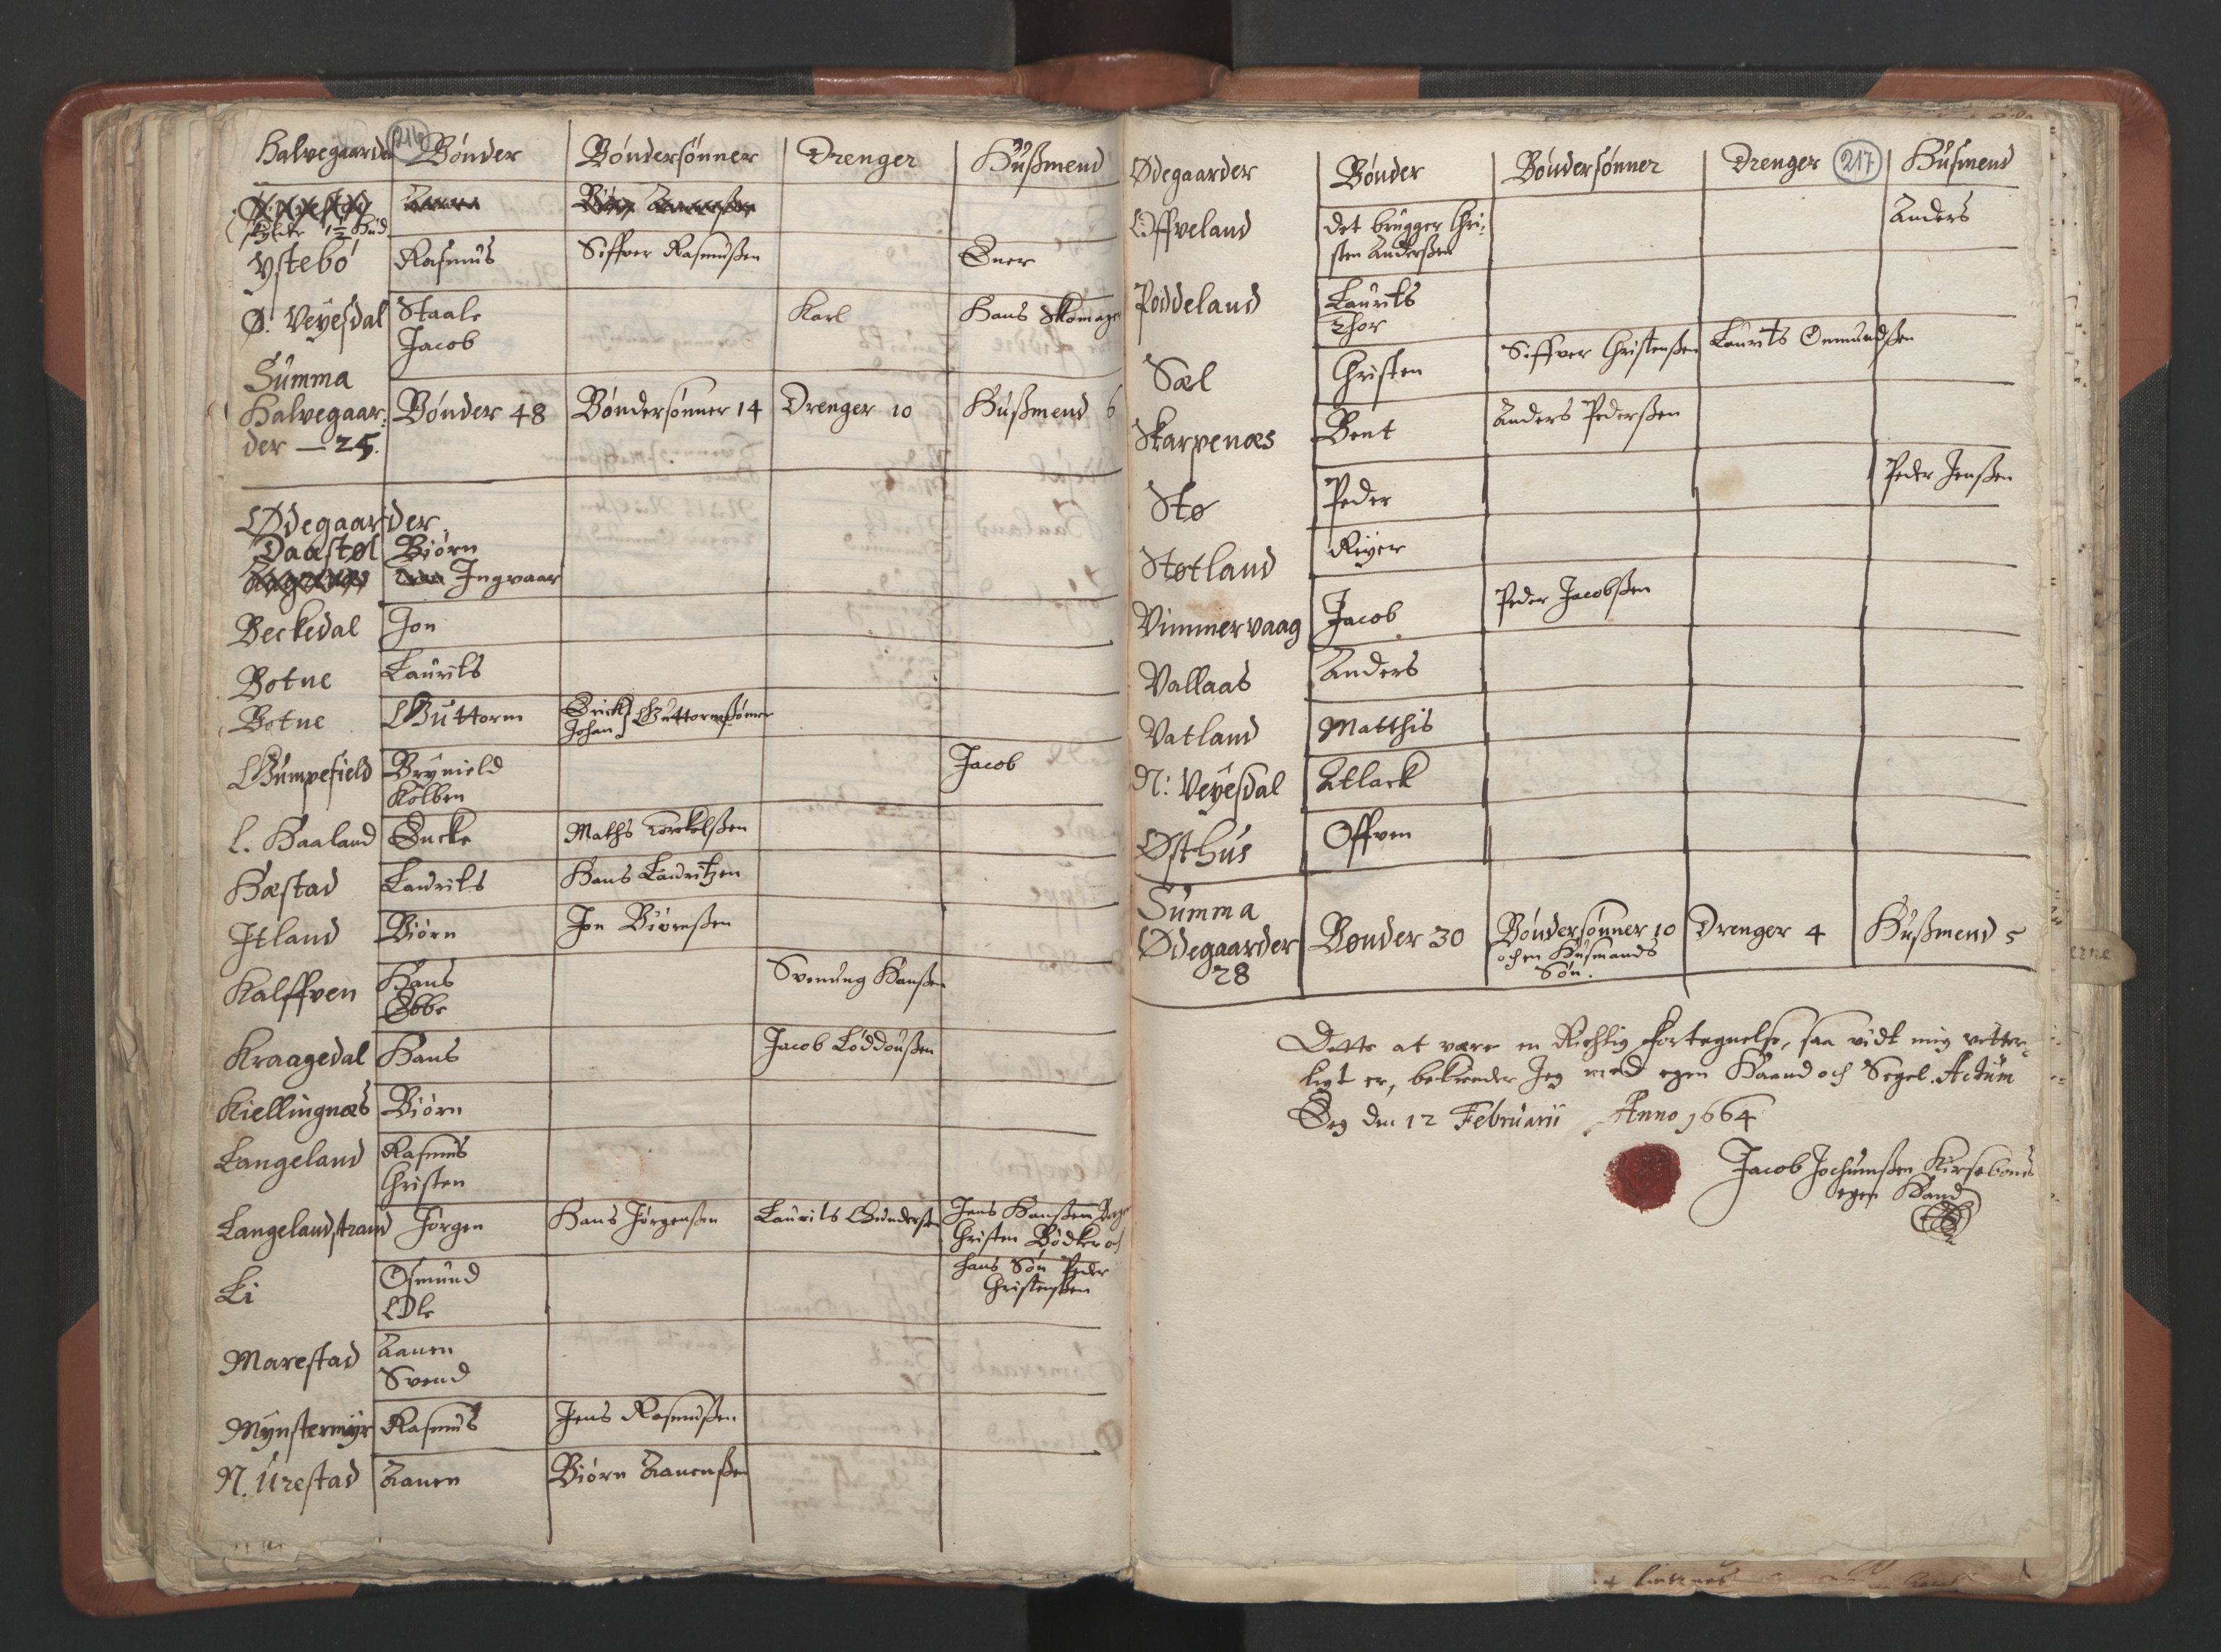 Halvegaarder Bønder Bøndersønner Drenger Hußmend
216
skylder 1½ Hud
Ystebø Rasmus Siffver Rasmußen Ener
Ø. Veyesdal Staale Karl Hans Skomager
Jacob
Summa
Halvegaar: Bønder 48 Bøndersønner 14 Drenger 10 Hußmend 6
der — 25.
Ødegaarder
Daastøl Biørn
Ingvaar
Beckedal Jon
Botne Laurits
Botne Guttorm Erick Johan Guttormsönner
Gumpefield Brynield Jacob
Kolben
L. Haaland Encke Maths Torckelßen
Hæstad Laurits Hans Lauritzen
Itland Biørn Jon Biørnßen
Kalffven Hans Svenung Hanßen
Ebbe
Kraagedal Hans Jacob Loddoußen
Kiellingnæs Biørn
Langeland Rasmus
Christen
Langelandstrand Jörgen Hans Jörgenßen Laurits Gunderßen Jens Hanßen
Christen Bödker och
hans Sön Peder
Christenßen
Li Osmund
Ole
Marestad Aanen
Svend
Mynstermyr Rasmus Jens Rasmußen
N. Urestad Aanen Biørn Aanenßen
Ødegaarder Bønder Bøndersønner Drenger 217 Husmend
Offveland det brugger Chri: Anders
sten Anderßen
Poddeland Laurits
Thor
Sæl Christen Siffver Christenßen Laurits Onmundßen
Skarpenæs Bent Anders Pederßen
Stø Peder Peder Jenßen
Støtland Reyer
Vimmervaag Jacob Peder Jacobßen
Vallaas Anders
Vatland Matthis
N: Veyesdal Atlack
Østhus Offven
Summa
Ødegaarder Bønder 30 Bøndersønner 10 Drenger 4 Hußmend 5
28 och en Husmands
Søn.
Dette at være en Richtig fortegnelse, saa vidt mig vitter:
ligt er, bekiender Jeg med egen Haand och Segel. Actum
Eeg den 12 Februarii Anno 1664
Jacob Jochumßen Kirsebom
egen Hand